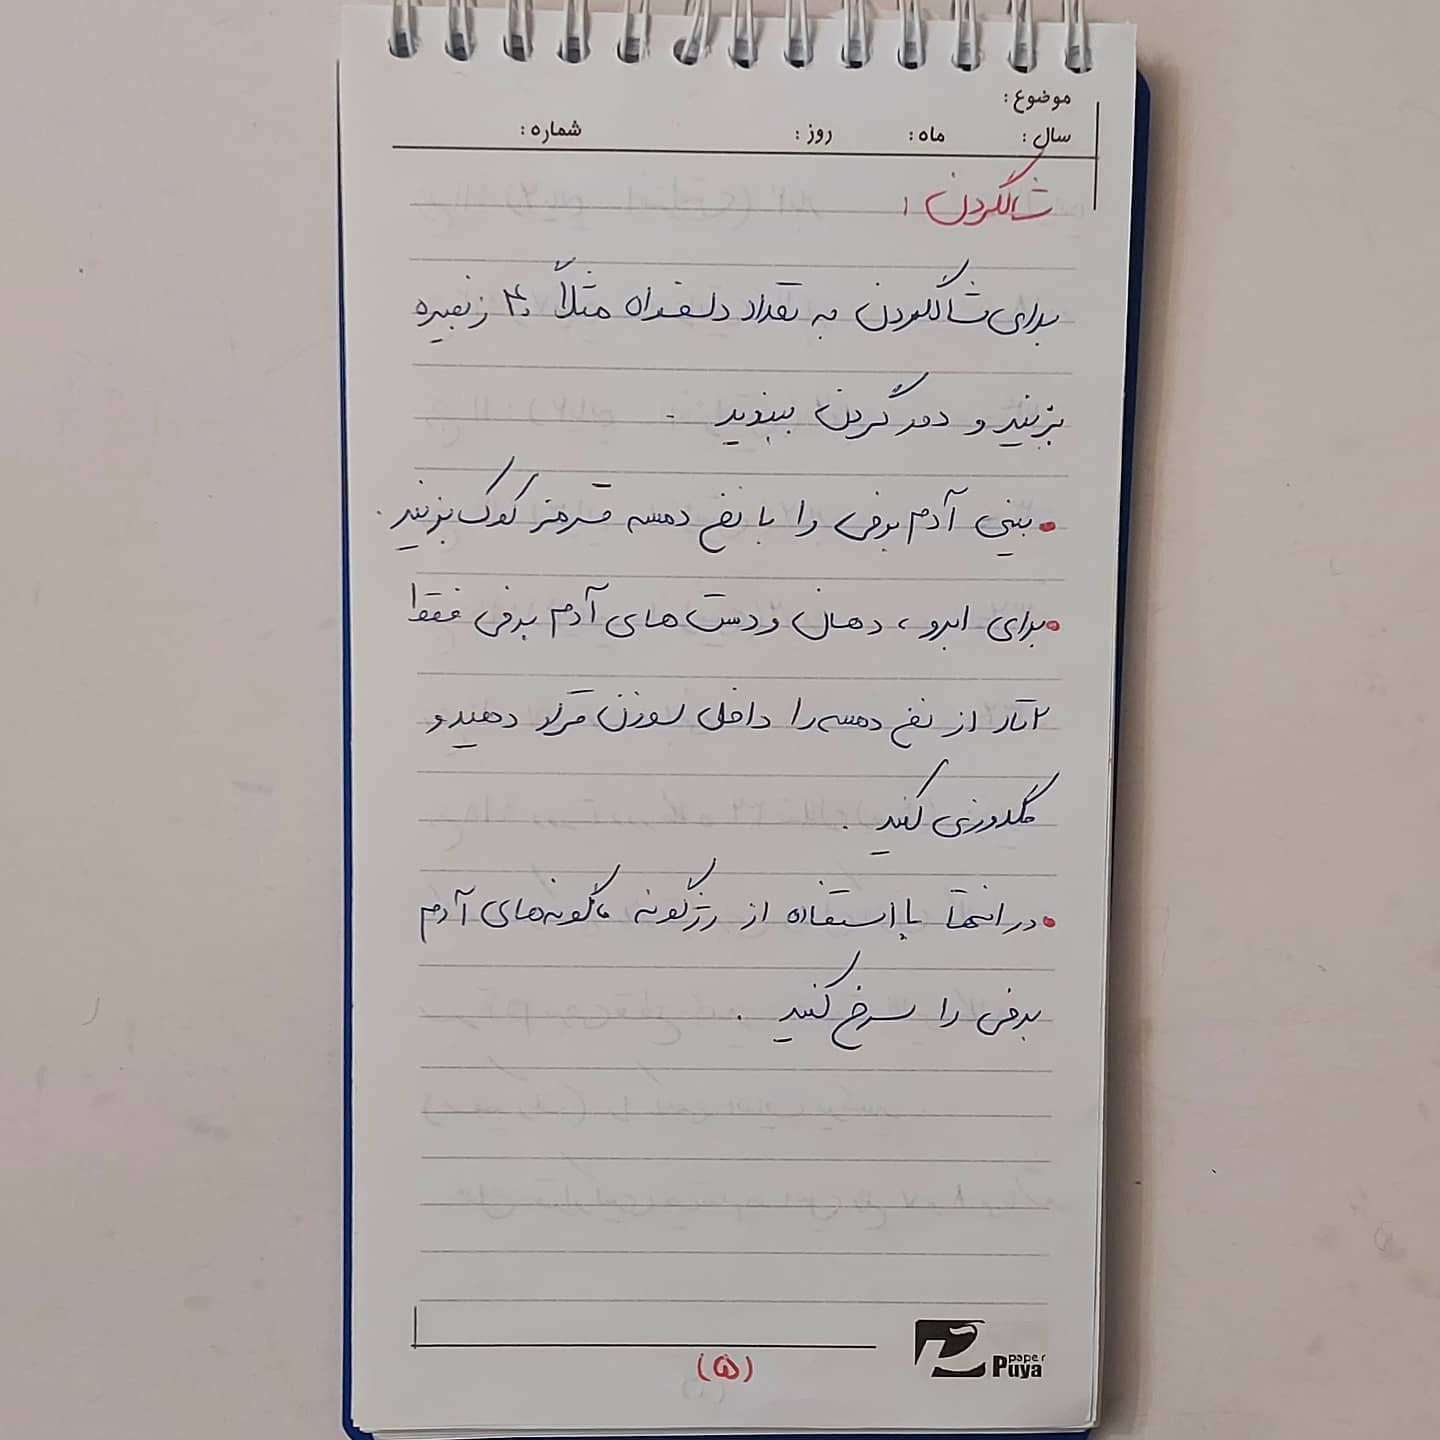 موضوع :
سال : ماه : روز : شماره :
شالگردن :
برای شالگردن به تعداد دلخواه مثلاً ۴۰ زنجیره
بزنید و دور گردن بپیچید .
• بینی آدم برفی را با نخ دمسه قرمز کوک بزنید .
• برای ابرو ، دهان و دست های آدم برفی فقط
۲ تار از نخ دمسه را داخل سوزن قرار دهید و
گلدوزی کنید .
• در انتها با استفاده از رژگونه گونه‌های آدم
برفی را سرخ کنید .
paper
Puya
(۵)